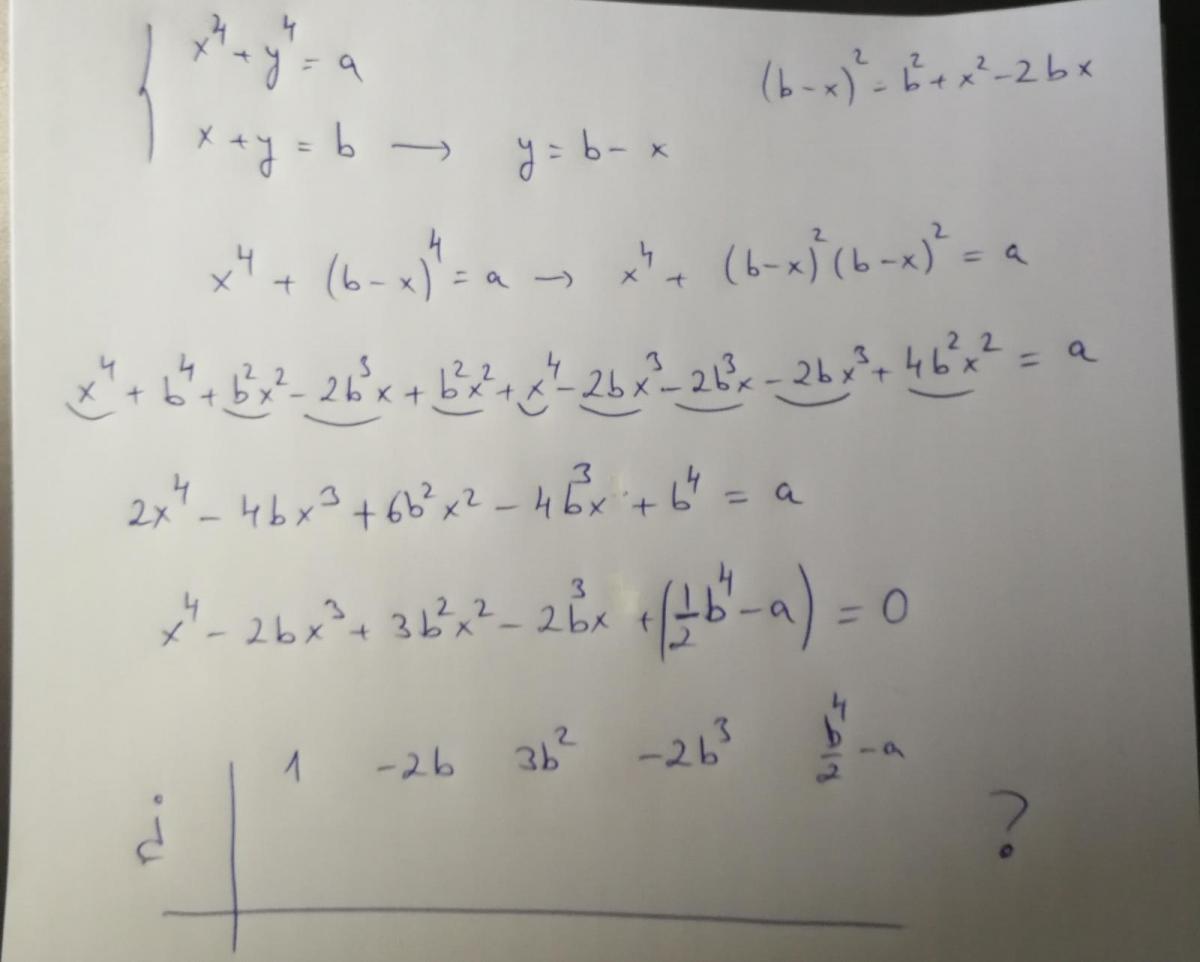 x⁴ + y⁴ = a
(b-x)² = b² + x² - 2bx
x + y = b → y = b - x
x⁴ + (b-x)⁴ = a → x⁴ + (b-x)²(b-x)² = a
x⁴ + b⁴ + b²x² - 2b³x + b²x² + x⁴ - 2bx³ - 2b³x - 2bx³ + 4b²x² = a
2x⁴ - 4bx³ + 6b²x² - 4b³x + b⁴ = a
x⁴ - 2bx³ + 3b²x² - 2b³x + (½b⁴ - a) = 0
1 -2b 3b² -2b³ b⁴/2 - a
?